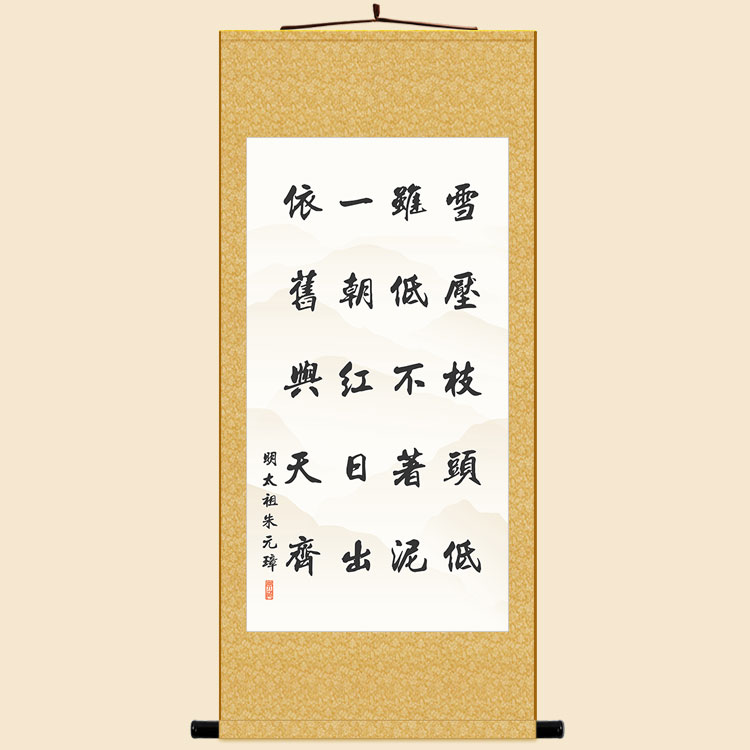 雪壓枝頭低
雖低不著泥
一朝紅日出
依舊與天齊
明太祖朱元璋